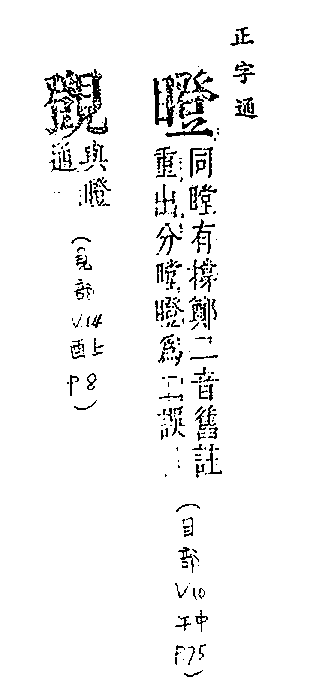 正字通
瞪
同瞠有摚鄭二音舊註
重出分瞠瞪爲二誤
(目部
V.10
午中
P.75)
覴
與瞪
通
(見部
V.14
酉上
P8)